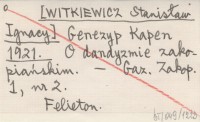 [WITKIEWICZ Stanisław
Ignacy] Genezyp Kapen
1921. O dandyzmie zako-
piańskim. — Gaz. Zakop.
1, nr 2.
Felieton.